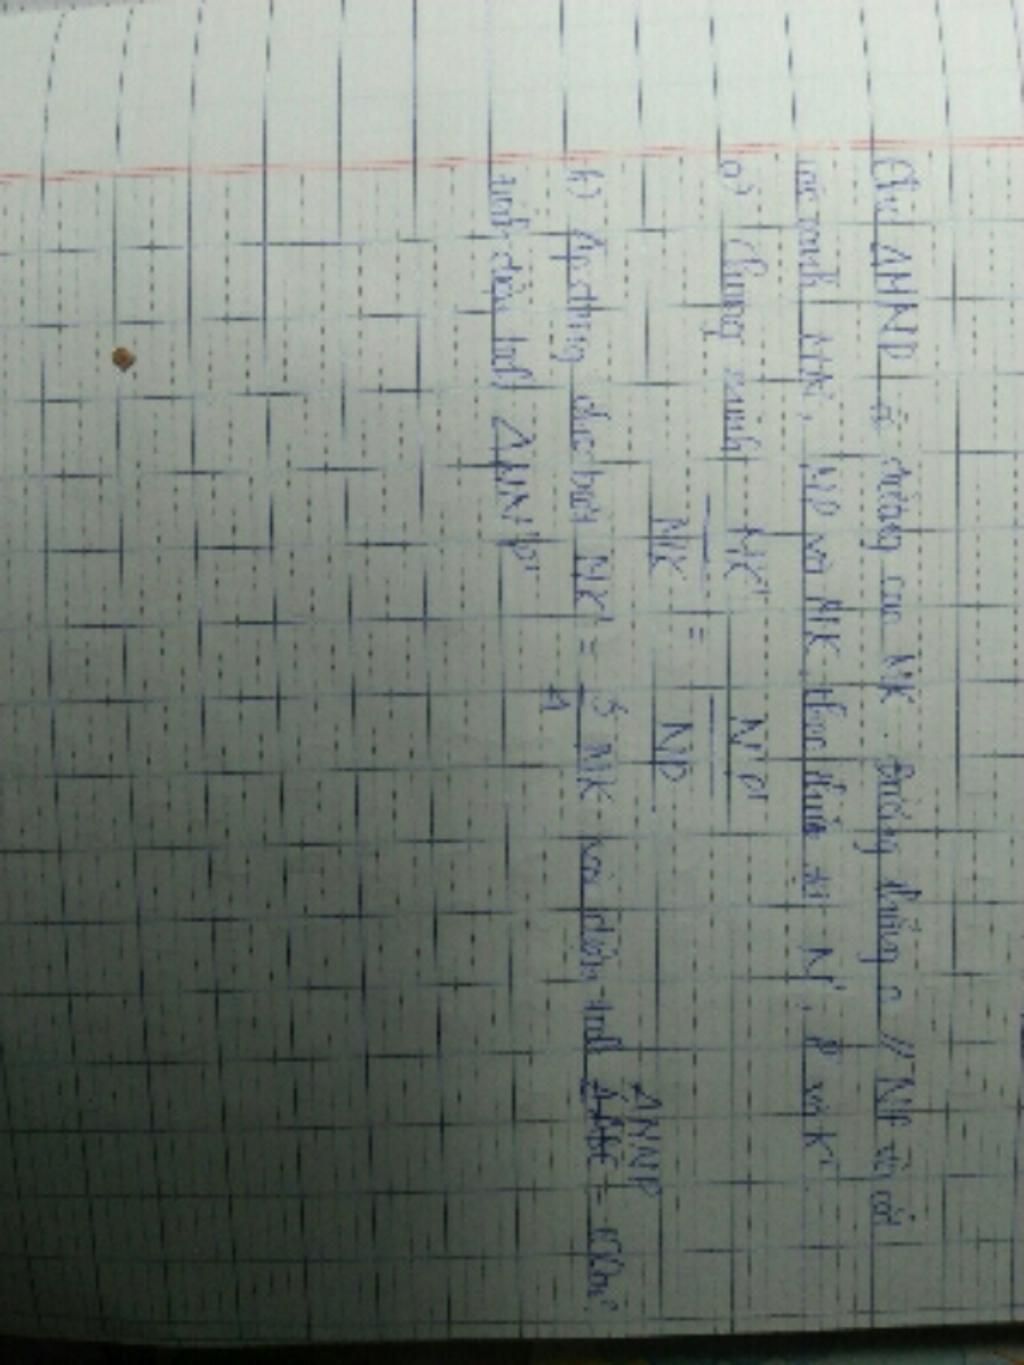 Cho ΔMNP có đường cao MK. Đường thẳng a // NP và cắt
các cạnh MN, MP và MK theo thứ tự tại N', P' và K'
a) Chứng minh MK'/MK = N'P'/NP
b) Áp dụng cho biết MK' = 1/3 MK và diện tích ΔMNP =
tính diện tích ΔMN'P'